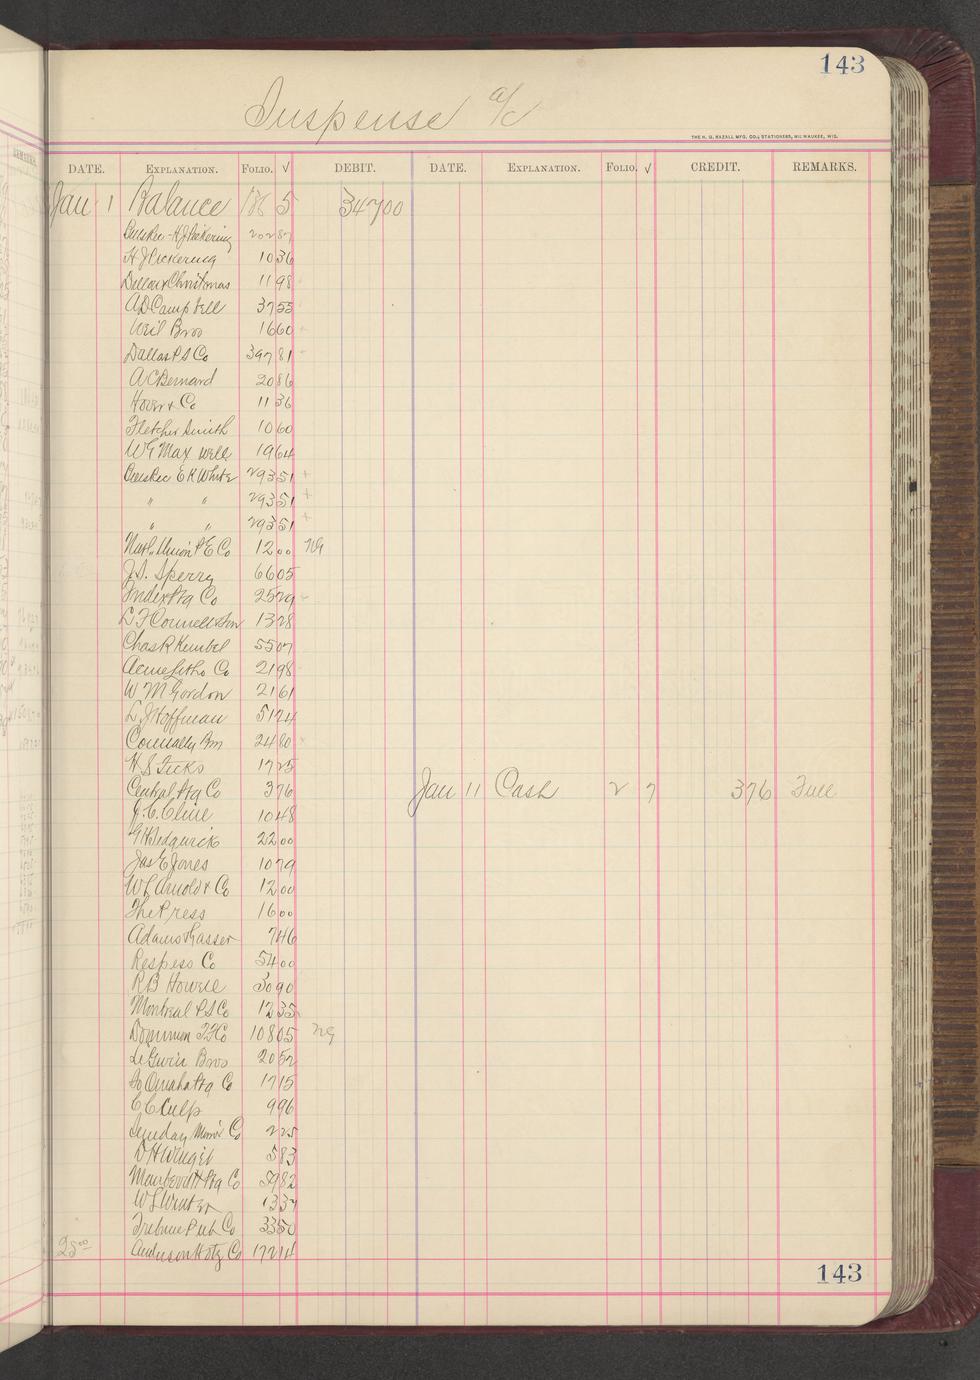 143
Suspense a/c
THE H. G. RAZALL MFG. CO., STATIONERS, MILWAUKEE, WIS.
DATE. EXPLANATION. FOLIO. √ DEBIT. DATE. EXPLANATION. FOLIO. √ CREDIT. REMARKS.
Jan 1 Balance 186 5 347 00
H J Pickering 202 87
H J Pickering 10 36
Dillon & Christmas 11 98
A D Campbell 37 55
Weil Bros 16 60
Dallas P S Co 397 81
A C Bernard 20 86
Hoover & Co 11 36
Fletcher Smith 10 60
W G Maxwell 19 64
E K White 293 51 +
" " 293 51 +
" " 293 51 +
Natl. Union P E Co 12 00 NG
J. S. Sperry 66 05
Index Ptg Co 25 29
L F Connell & Son 13 28
Chas R Kimbel 55 07
Acme Litho Co 21 98
W M Gordon 21 61
L J Hoffman 51 24
Connally Bm 24 80
H S Ticks 17 25
Central Ptg Co 3 76 Jan 11 Cash 2 7 3 76 Full
J. C. Cline 10 48
G H Sedgwick 22 00
Jas E Jones 10 79
W L Arnold & Co 12 00
The Press 16 00
Adams & Gasser 7 46
Respess Co 54 00
R B Howell 30 90
Montreal P S Co 12 35
Dominion Co 108 05 NG
Le Gwin Bros 20 52
So Omaha Ptg Co 17 15
E C Culp 9 96
Sunday Morn'g Co 2 25
D H Winget 5 83
Ptg Co 59 82
W L Winter 13 37
Tribune Pub Co 33 50
25 00 Anderson Co 172 14
143